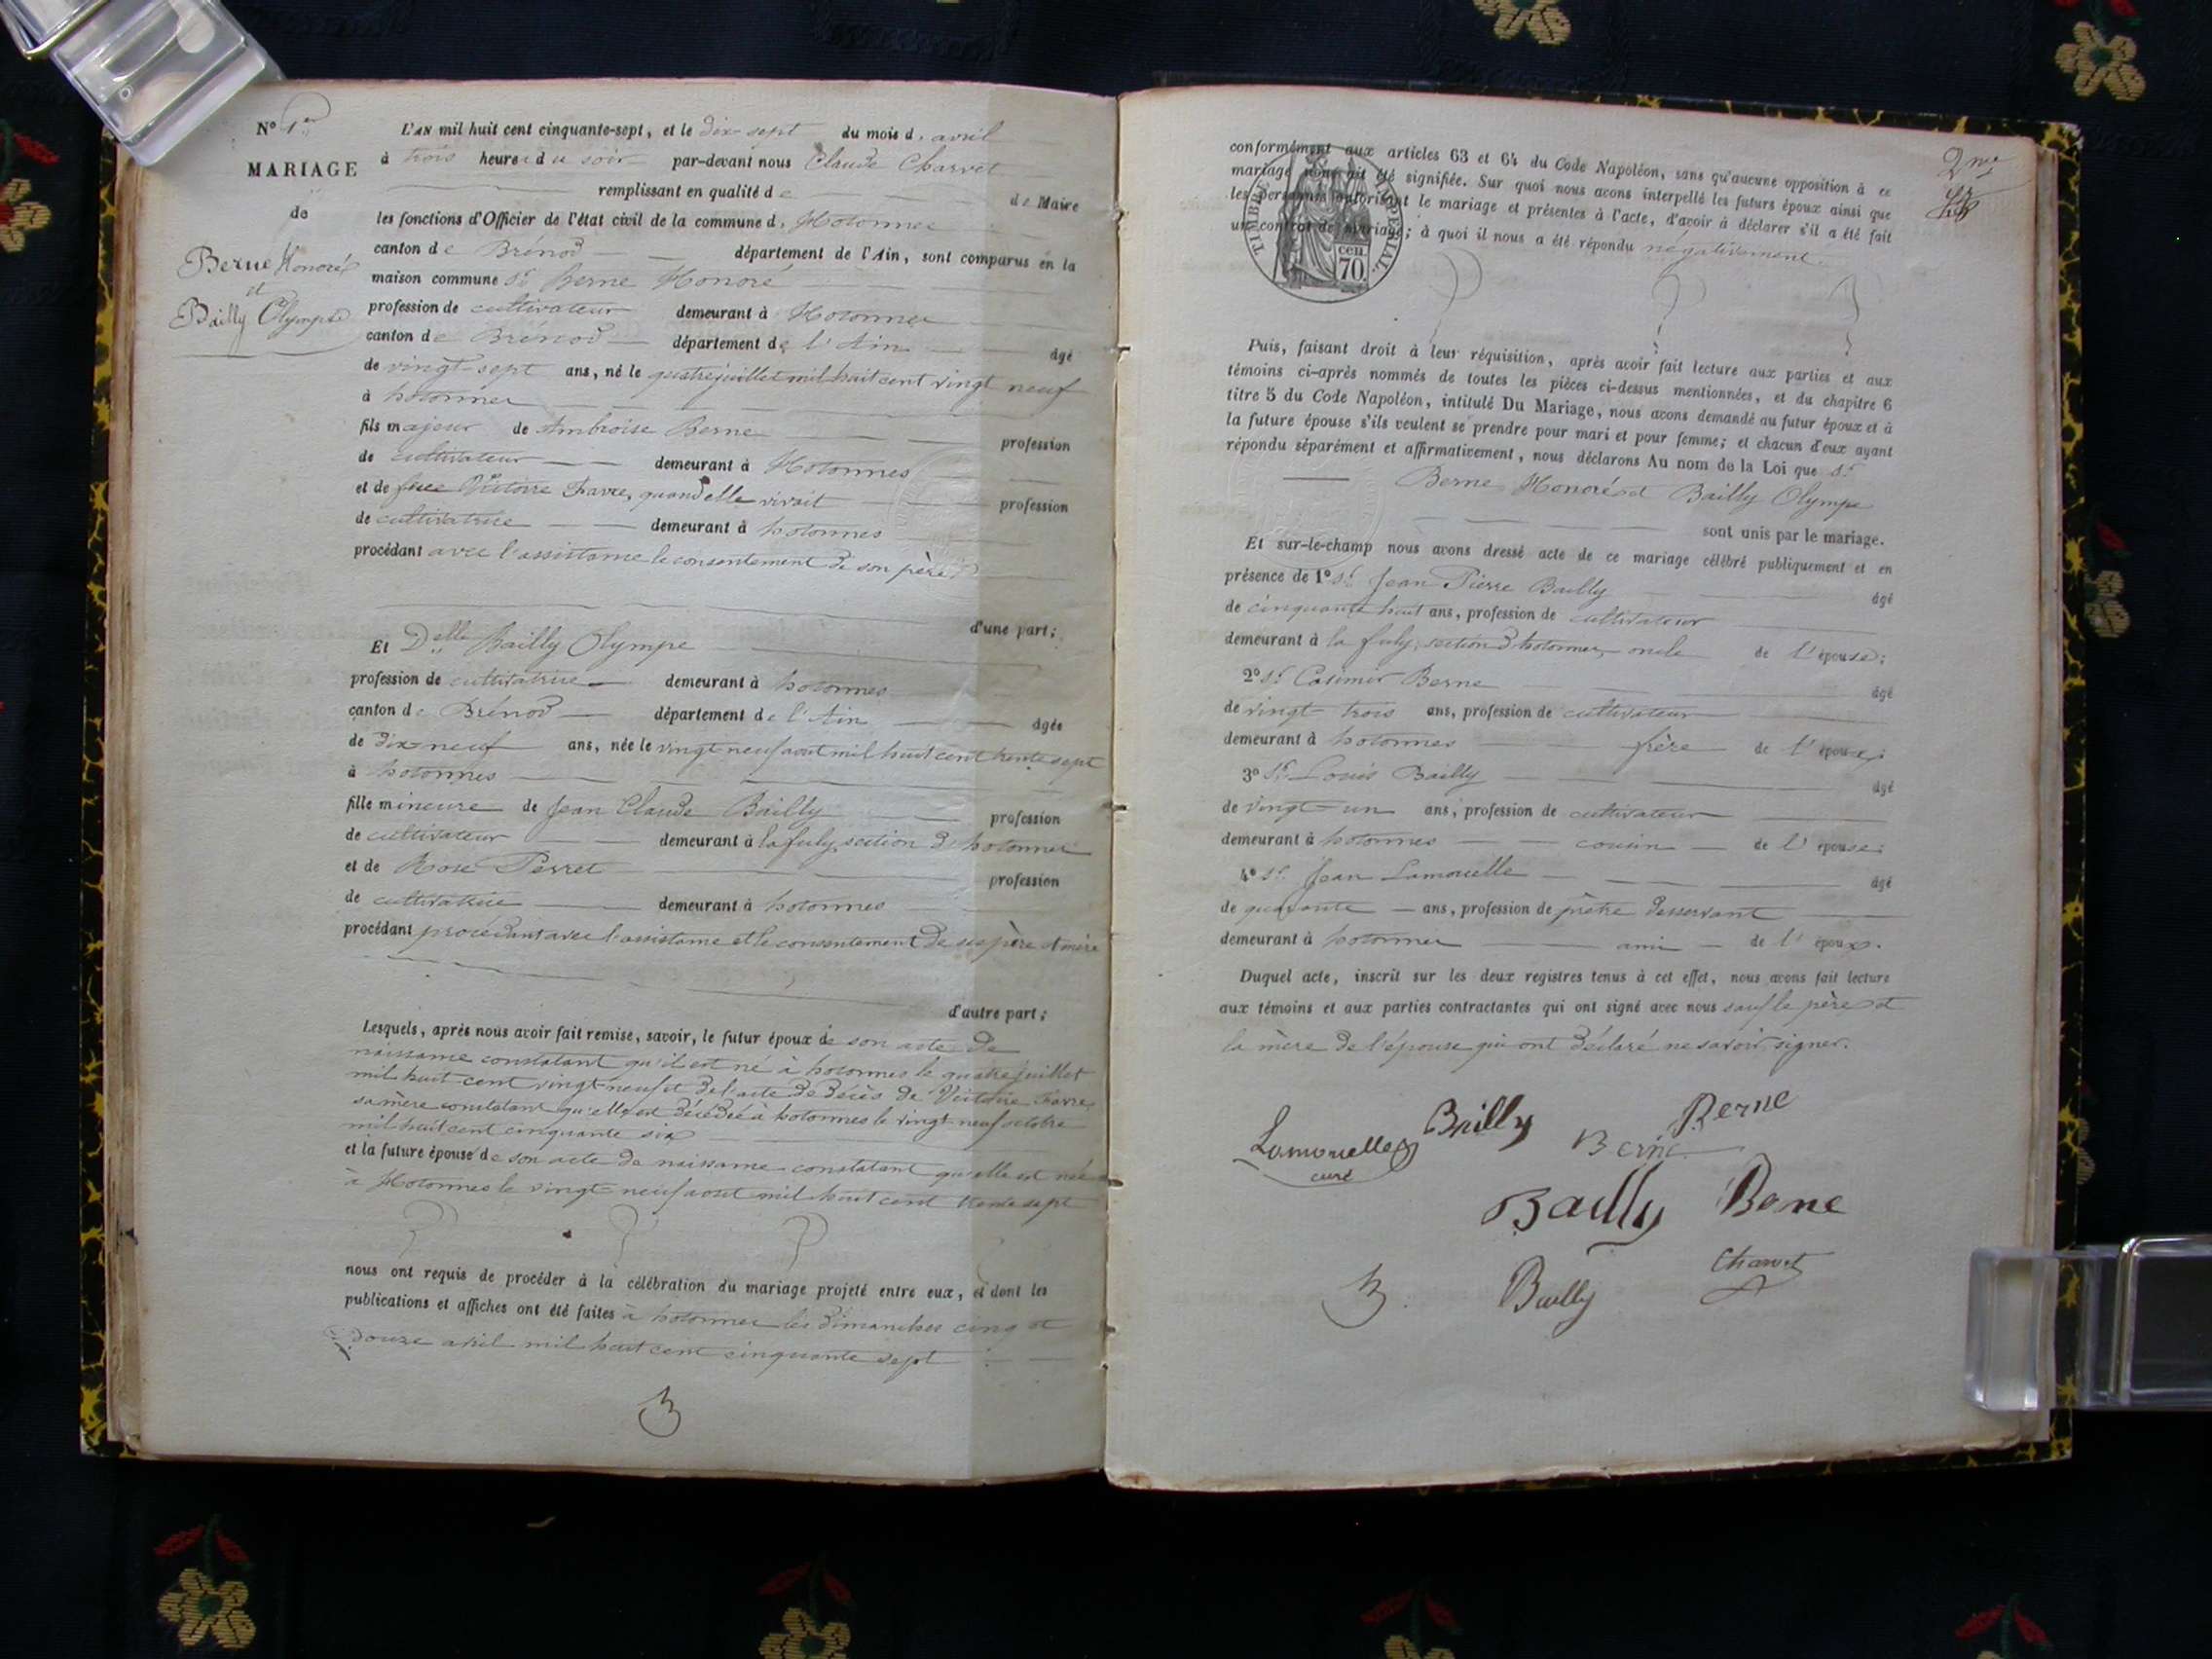 N° 1er
MARIAGE
de
Berne Honoré
et
Bailly Olympe
L'AN mil huit cent cinquante-sept, et le dix-sept du mois d'avril
à trois heures du soir par-devant nous Claude Charvet
remplissant en qualité de de Maire
les fonctions d'Officier de l'état civil de la commune d' Hotonnes
canton de Brénod département de l'Ain, sont comparus en la
maison commune Sr Berne Honoré
profession de cultivateur demeurant à Hotonnes
canton de Brénod département de l'Ain âgé
de vingt-sept ans, né le quatre juillet mil huit cent vingt neuf
à hotonnes
fils majeur de Ambroise Berne profession
de cultivateur demeurant à Hotonnes
et de feue Victoire Favre, quand elle vivait profession
de cultivatrice demeurant à hotonnes
procédant avec l'assistance le consentement de son père
d'une part;
Et Delle Bailly Olympe
profession de cultivatrice demeurant à hotonnes
canton de Brénod département de l'Ain âgée
de dix-neuf ans, née le vingt neuf aout mil huit cent trente sept
à hotonnes
fille mineure de Jean Claude Bailly profession
de cultivateur demeurant à la fuly section d'hotonnes
et de Rose Perret profession
de cultivatrice demeurant à hotonnes
procédant procédant avec l'assistance et le consentement de ses père et mère
d'autre part;
Lesquels, après nous avoir fait remise, savoir, le futur époux de son acte de
naissance constatant qu'il est né à hotonnes le quatre juillet
mil huit cent vingt-neuf et de l'acte de décès de Victoire Favre
sa mère constatant qu'elle est décédée à hotonnes le vingt neuf octobre
mil huit cent cinquante six
et la future épouse de son acte de naissance constatant qu'elle est née
à Hotonnes le vingt-neuf aout mil huit cent trente sept
nous ont requis de procéder à la célébration du mariage projeté entre eux, et dont les
publications et affiches ont été faites à hotonnes les dimanches cinq et
douze avril mil huit cent cinquante sept
2me
conformément aux articles 63 et 64 du Code Napoléon, sans qu'aucune opposition à ce
mariage nous ait été signifiée. Sur quoi nous avons interpellé les futurs époux ainsi que
les personnes autorisant le mariage et présentes à l'acte, d'avoir à déclarer s'il a été fait
un contrat de mariage; à quoi il nous a été répondu négativement.
TIMBRE IMPERIAL.
cen.
70
Puis, faisant droit à leur réquisition, après avoir fait lecture aux parties et aux
témoins ci-après nommés de toutes les pièces ci-dessus mentionnées, et du chapitre 6
titre 5 du Code Napoléon, intitulé Du Mariage, nous avons demandé au futur époux et à
la future épouse s'ils veulent se prendre pour mari et pour femme; et chacun d'eux ayant
répondu séparément et affirmativement, nous déclarons Au nom de la Loi que Sr
Berne Honoré et Bailly Olympe
sont unis par le mariage.
Et sur-le-champ nous avons dressé acte de ce mariage célébré publiquement et en
présence de 1° Sr Jean Pierre Bailly âgé
de cinquante huit ans, profession de cultivateur
demeurant à la fuly, section d'hotonnes oncle de l'épouse;
2° Sr Casimir Berne âgé
de vingt-trois ans, profession de cultivateur
demeurant à hotonnes frère de l'époux;
3° Sr Louis Bailly âgé
de vingt-un ans, profession de cultivateur
demeurant à hotonnes cousin de l'épouse;
4° Sr Jean Lamouelle âgé
de quarante ans, profession de prêtre desservant
demeurant à hotonnes ami de l'époux.
Duquel acte, inscrit sur les deux registres tenus à cet effet, nous avons fait lecture
aux témoins et aux parties contractantes qui ont signé avec nous sauf le père et
la mère de l'épouse qui ont déclaré ne savoir signer.
Lamouelle Bailly Berne Berne
curé
Bailly Berne
Bailly Charvet